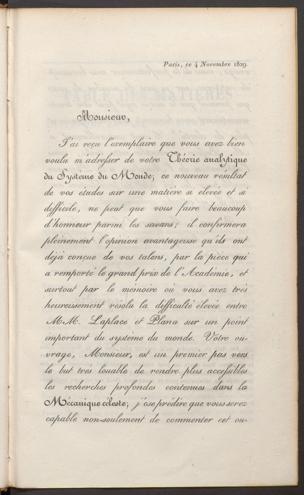 Paris, ce 4 Novembre 1829.
Monsieur,
J'ai reçu l'exemplaire que vous avez bien
voulu m'adresser de votre Théorie analytique
du Système du Monde; ce nouveau résultat
de vos études sur une matière si élevée et si
difficile, ne peut que vous faire beaucoup
d'honneur parmi les savans; il confirmera
pleinement l'opinion avantageuse qu'ils ont
déjà conçue de vos talens, par la pièce qui
a remporté le grand prix de l'Académie, et
surtout par le mémoire où vous avez très
heureusement résolu la difficulté élevée entre
M.M. Laplace et Plana sur un point
important du système du monde. Votre ou-
vrage, Monsieur, est un premier pas vers
le but très louable de rendre plus accessibles
les recherches profondes contenues dans la
Mécanique céleste; j'ose prédire que vous serez
capable non-seulement de commenter cet ou-